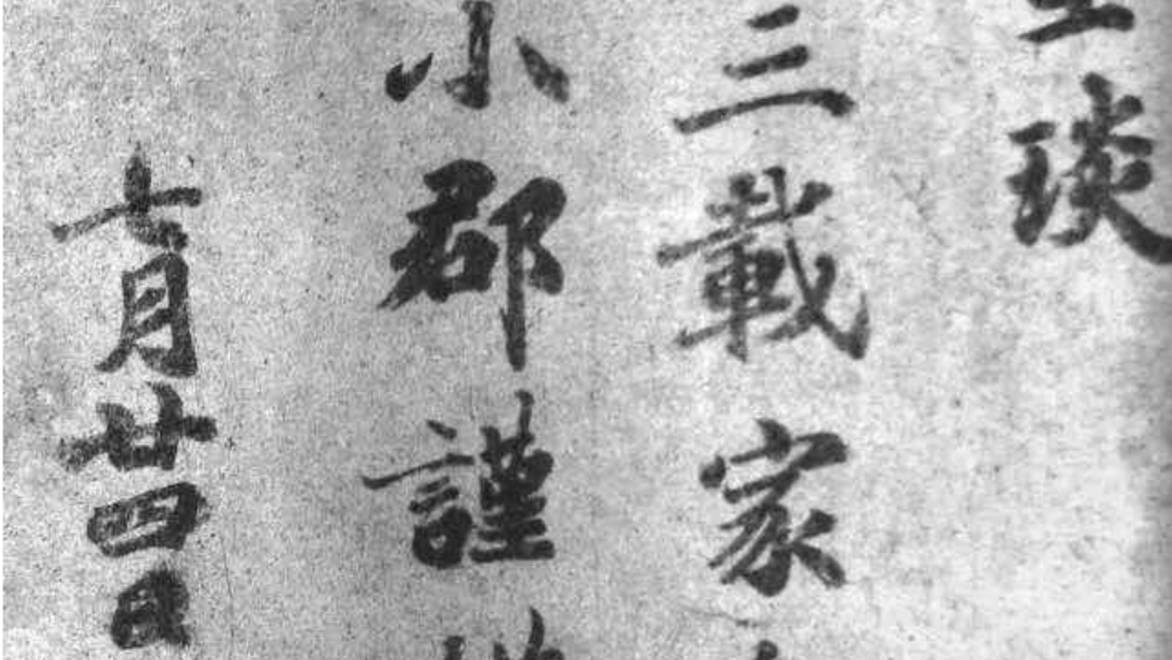 琰
三載家
小郡謹
七月廿四日